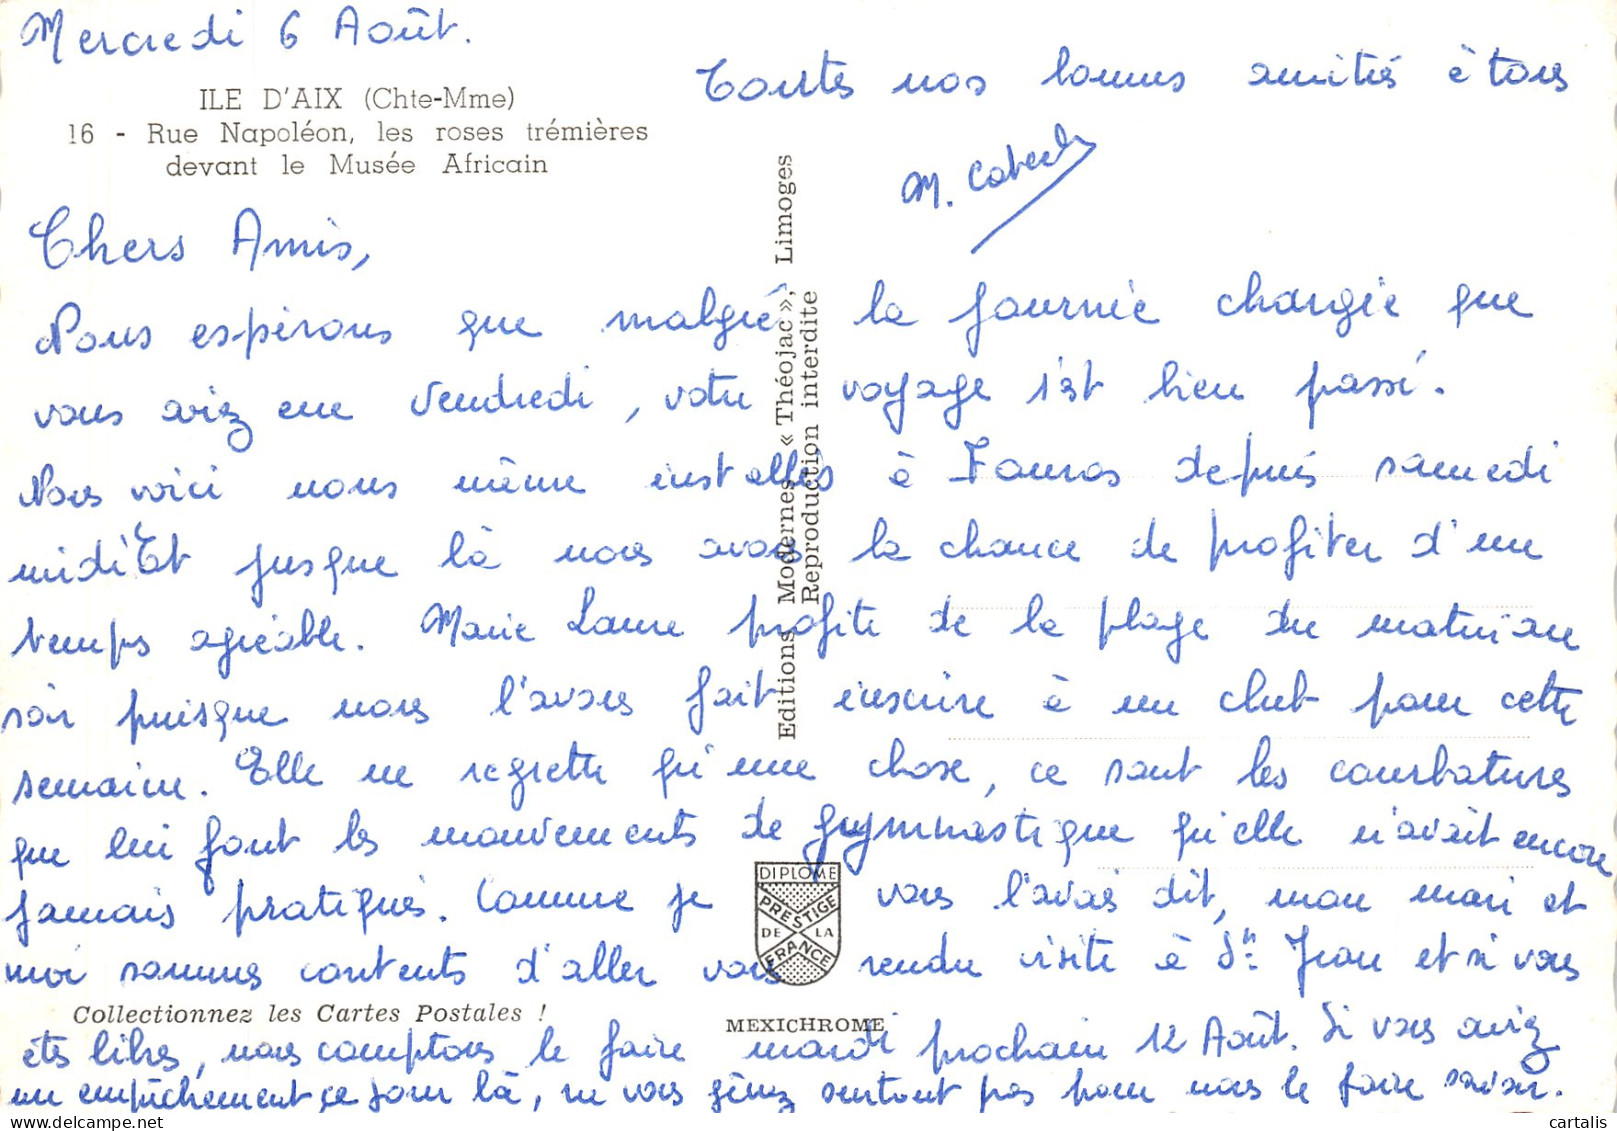 Mercredi 6 Août.
ILE D'AIX (Chte-Mme)
16 - Rue Napoléon, les roses trémières
devant le Musée Africain
Toutes nos bonnes amitiés à tous
M.
Chers Amis,
Nous espérons que malgré la journée chargée que
vous aviez eue vendredi, votre voyage s'est bien passé.
Nous voici nous même installés à Fouras depuis samedi
midi. Et jusque là nous avons la chance de profiter d'un
temps agréable. Marie Laure profite de la plage du matin au
soir puisque nous l'avons fait inscrire à un club pour cette
semaine. Elle ne regrette qu'une chose, ce sont les courbatures
que lui font les mouvements de gymnastique qu'elle n'avait encore
jamais pratiqués. Comme je vous l'avais dit, mon mari et
moi sommes contents d'aller vous rendre visite à St Jean et si vous
êtes libres, nous comptons le faire mardi prochain 12 Août. Si vous aviez
un empêchement ce jour là, ne vous gênez surtout pas pour nous le faire savoir.
Editions Modernes « Théojac », Limoges
Reproduction interdite
DIPLOME
PRESTIGE
DE LA
FRANCE
Collectionnez les Cartes Postales !
MEXICHROME
delcampe.net
cartalis